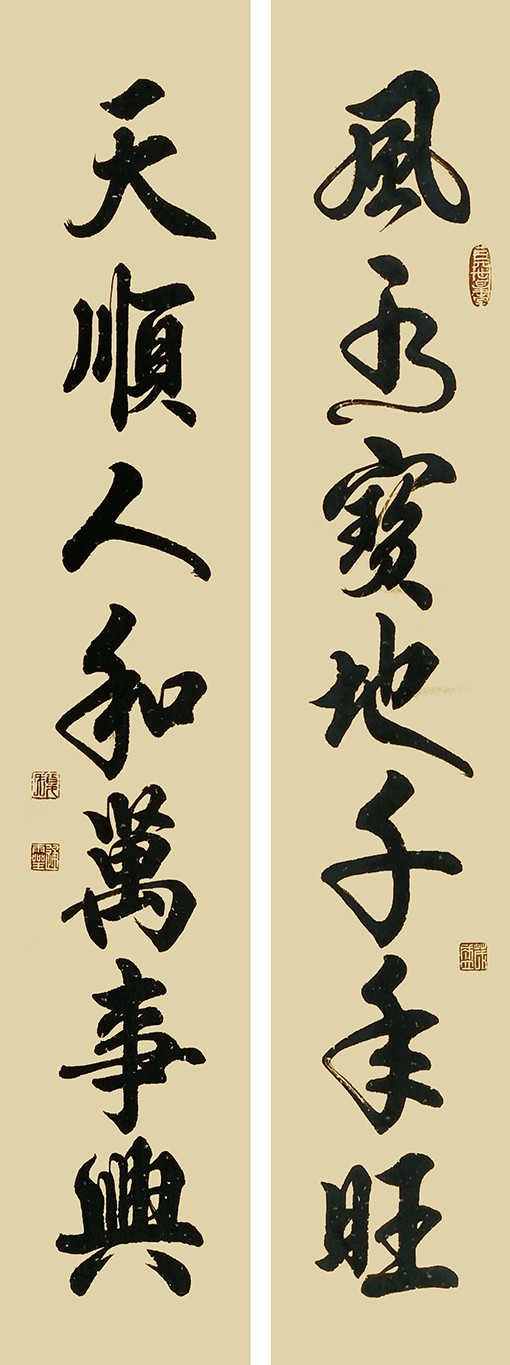 風水寶地千年旺
天順人和萬事興